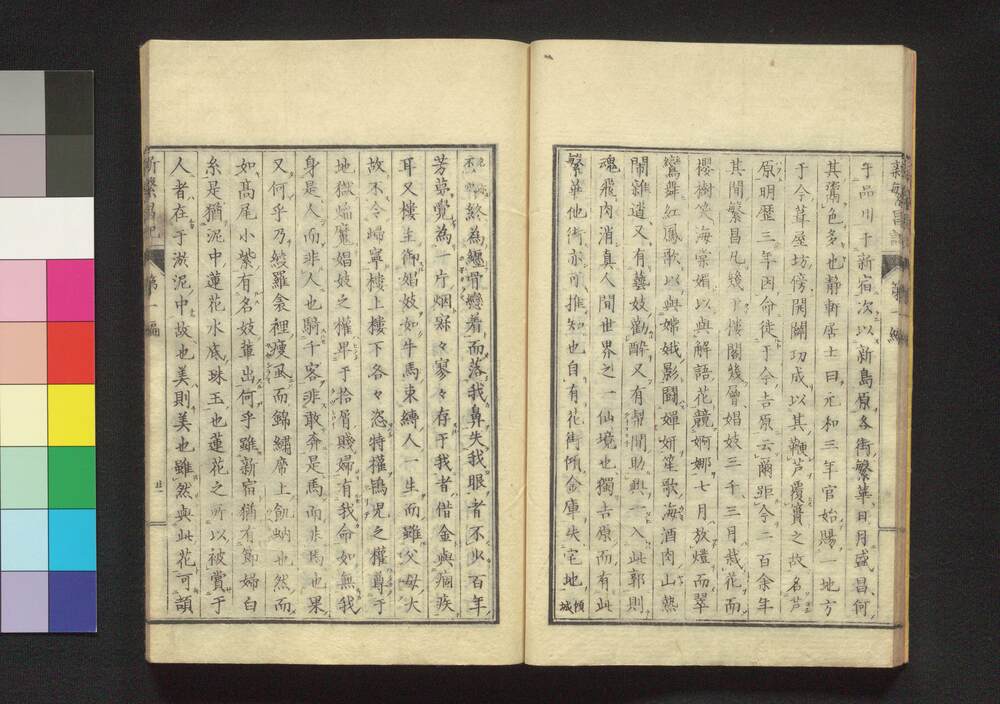 于品川于新宿次以新島原各街繁華日月盛昌何
其鬻色多也靜軒居士曰元和三年官始賜一地方
于今葺屋坊傍開闢功成以其鞭芦覆簣之故名芦
原明歷三年因命徙于今吉原云爾距今二百余年
其間繁昌凡幾丁樓閣幾層娼妓三千三月栽花而
櫻樹笑海棠媚以與解語花競婀娜七月放燈而翠
鸞舞紅鳳歌以與嫦娥影鬪嬋妍笙歌海酒肉山熱
鬧雜遝又有藝妓勸醉又有幇間助興一入此郭則
魂飛肉消真人間世界之一仙境也獨吉原而有此
繁華他街亦可推知也自有花街傾金庫失宅地傾城
終為纏骨戀着而落我鼻失我眼者不少百年
芳夢覺為一片烟寂々寥々存于我者借金與痼疾
耳又樓主御娼妓如牛馬束縛人一生而雖父母大
故不令歸寧樓上樓下各々恣特權鴇兒之權尊于
地獄焔魔娼妓之權畢于拾屑賤婦有我命如無我
身是人而非人也騎千客非敢奔是馬而非馬也果
又何乎乃綾羅衾裡瘦虱而錦繡席上飢蚋也然而
如高尾小紫有名妓輩出何乎雖新宿猶有節婦白
糸是猶泥中蓮花水底珠玉也蓮花之所以被賞于
人者在于淤泥中故也美則美也雖然與此花可頡
新繁昌記
第一編
廿一